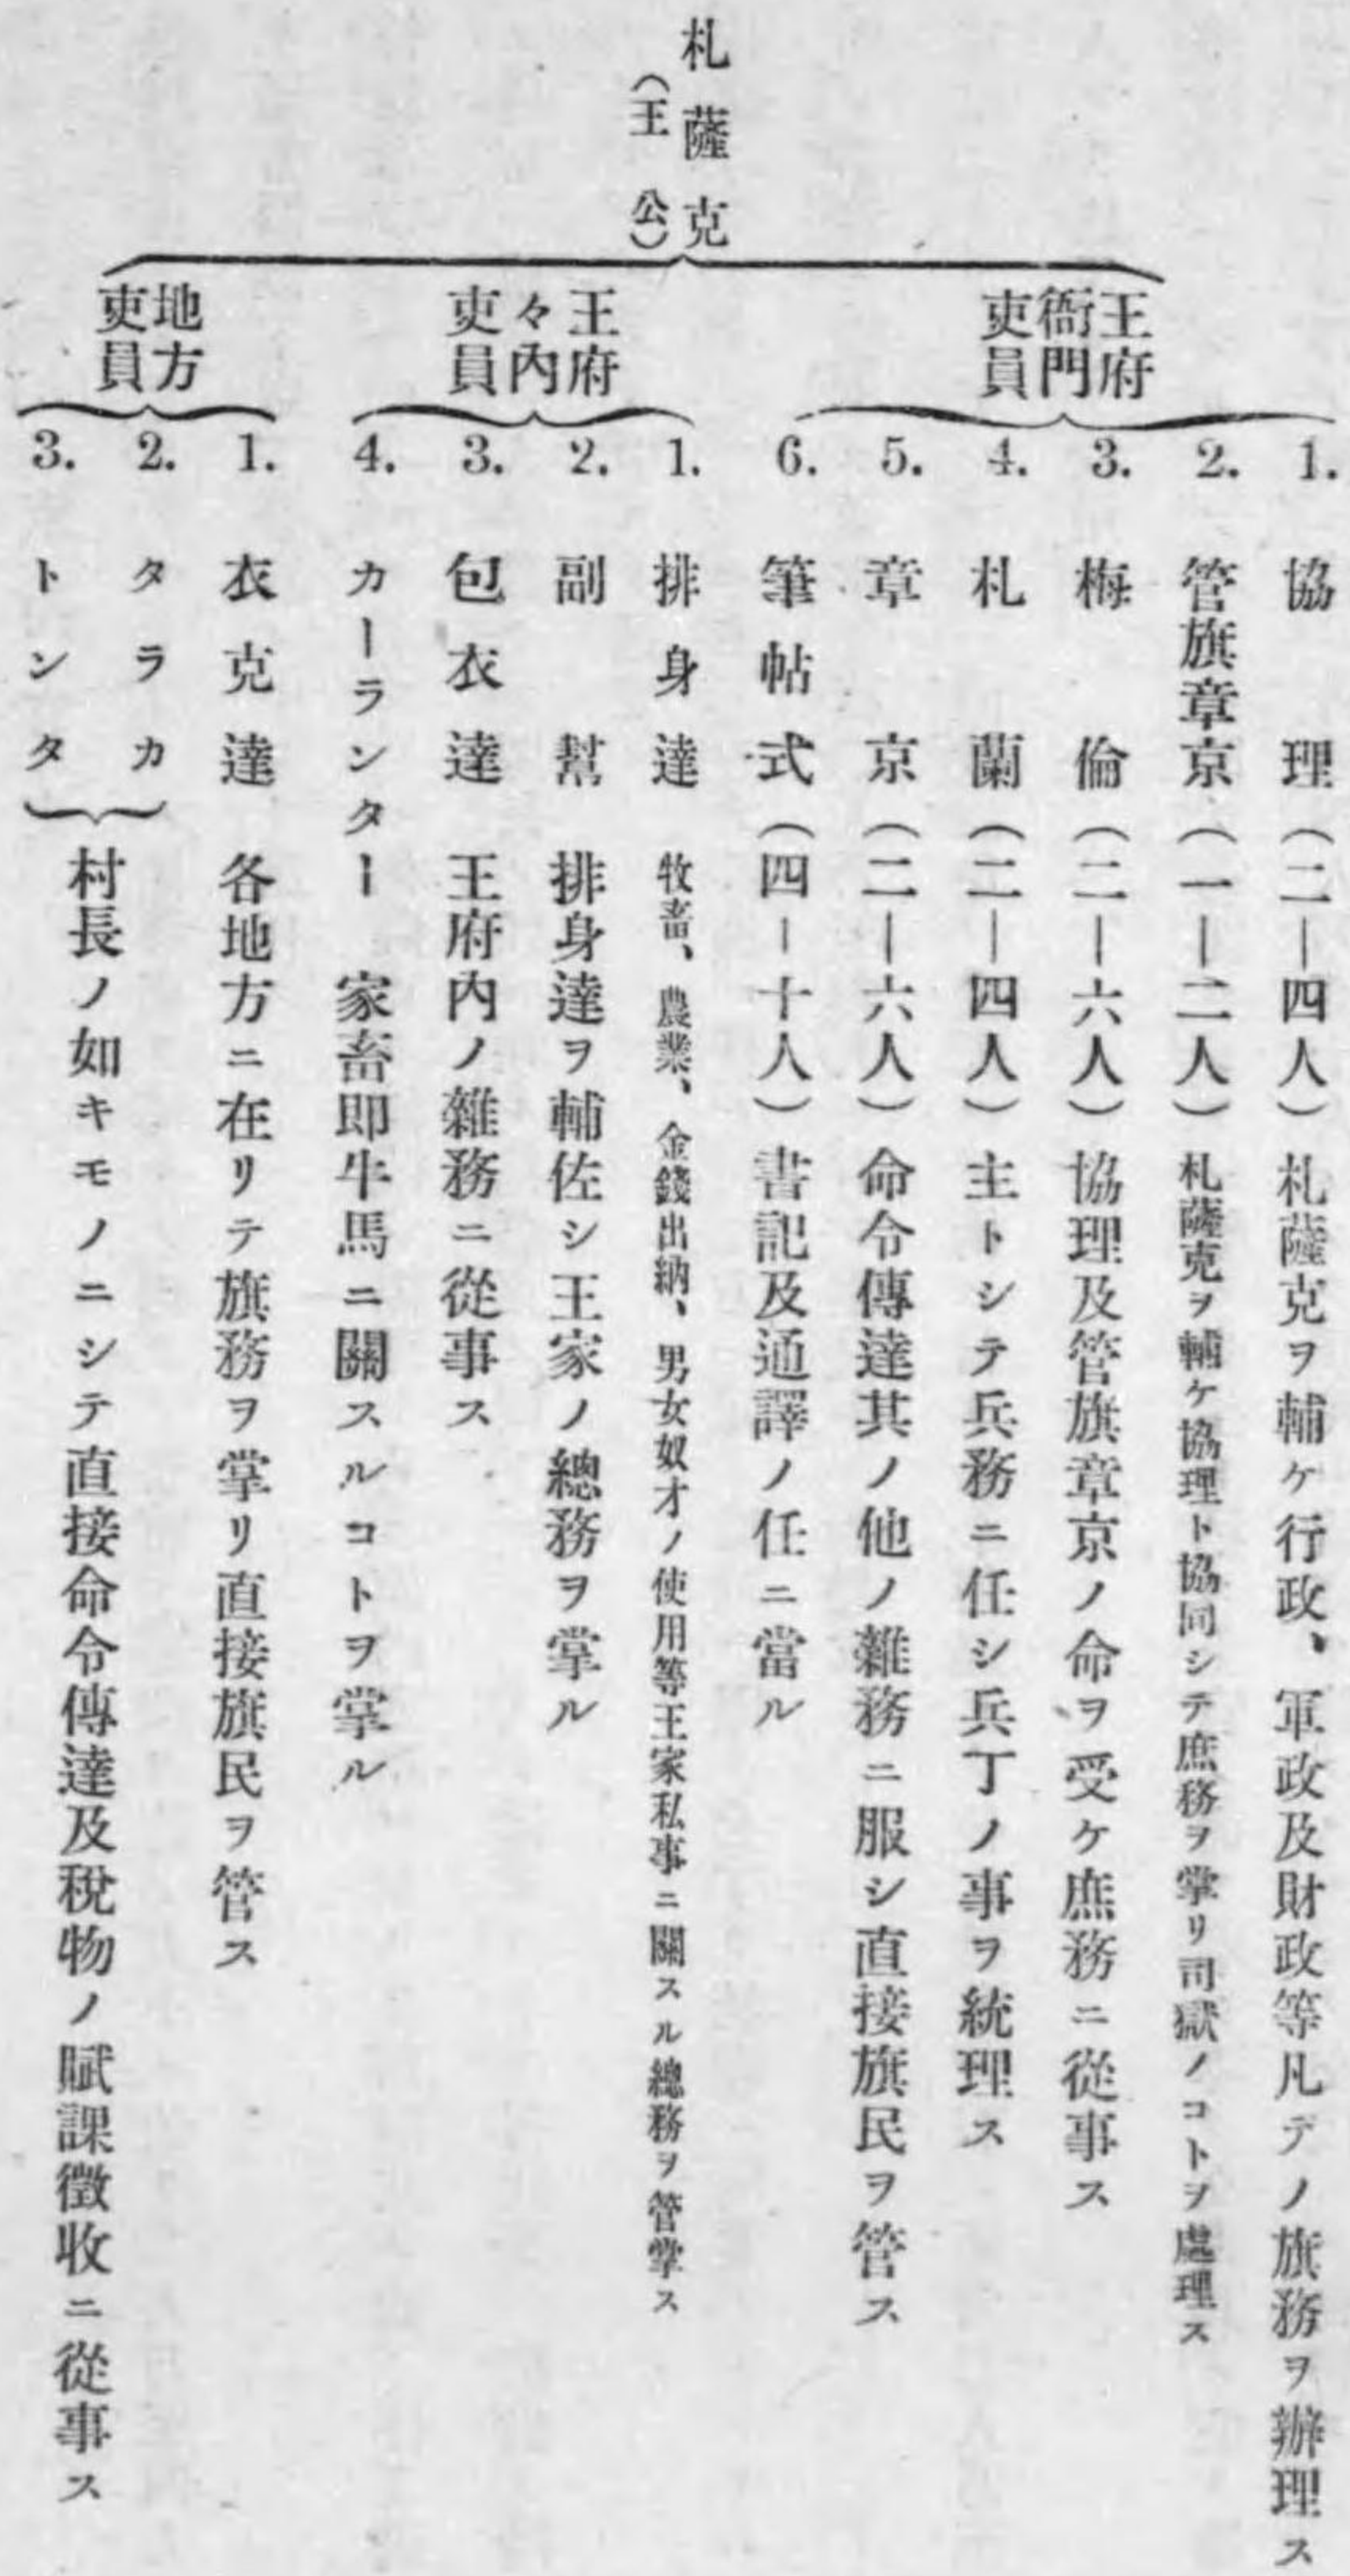 札薩克
(王公)
王府
衙門
吏員
1. 協理(二—四人)札薩克ヲ輔ケ行政、軍政及財政等凡テノ旗務ヲ辦理ス
2. 管旗章京(一—二人)札薩克ヲ輔ケ協理ト協同シテ庶務ヲ掌リ司獄ノコトヲ處理ス
3. 梅倫(二—六人)協理及管旗章京ノ命ヲ受ケ庶務ニ從事ス
4. 札蘭(二—四人)主トシテ兵務ニ任シ兵丁ノ事ヲ統理ス
5. 章京(二—六人)命令傳達其ノ他ノ雜務ニ服シ直接旗民ヲ管ス
6. 筆帖式(四—十人)書記及通譯ノ任ニ當ル
王府
々內
吏員
1. 排身達 牧畜、農業、金錢出納、男女奴才ノ使用等王家私事ニ關スル總務ヲ管掌ス
2. 副幫 排身達ヲ輔佐シ王家ノ總務ヲ掌ル
3. 包衣達 王府內ノ雜務ニ從事ス
4. カーランター 家畜卽牛馬ニ關スルコトヲ掌ル
地方
吏員
1. 衣克達 各地方ニ在リテ旗務ヲ掌リ直接旗民ヲ管ス
2. タラカ
3. トンタ
村長ノ如キモノニシテ直接命令傳達及稅物ノ賦課徵收ニ從事ス